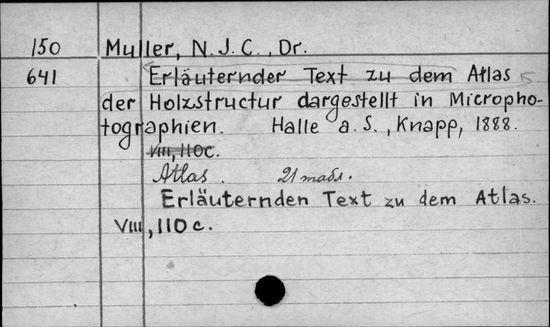 150 Muller, N. J. C., Dr.
641 Erläuternder Text zu dem Atlas
der Holzstructur dargestellt in Micropho-
tographien. Halle a. S., Knapp, 1888.
VIII, 110 c.
Atlas. 21 табл.
Erläuternden Text zu dem Atlas.
VIII, 110 c.